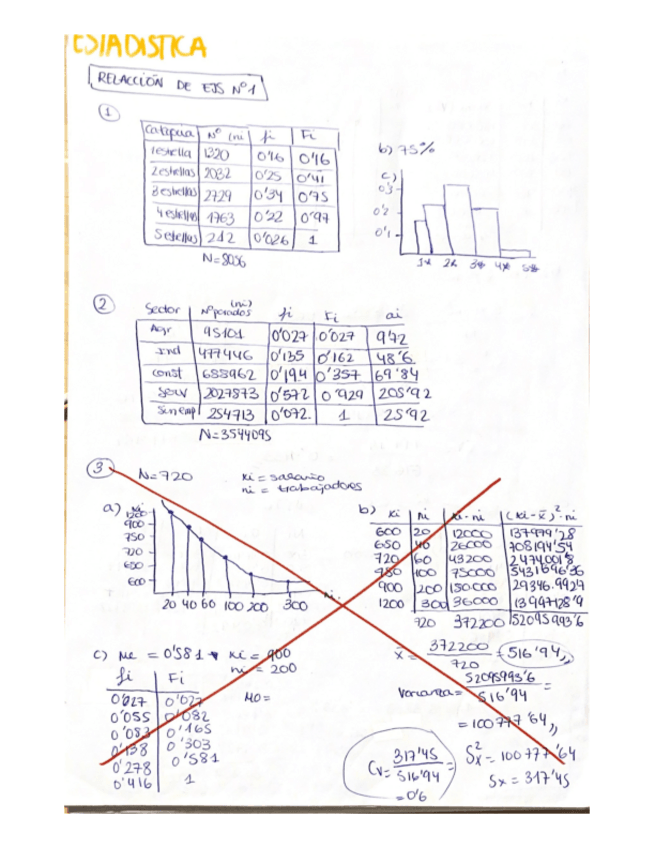 ESTADISTICA
RELACCIÓN DE EJS Nº1
1
Categoria Nº (ni fi Fi
1estrella 1320 0'16 0'16
2estrellas 2032 0'25 0'41
3estrellas 2729 0'34 0'75
4estrellas 1763 0'22 0'97
5estrellas 212 0'026 1
N=8056
b) 75%
c)
0'3
0'2
0'1
1* 2* 3* 4* 5*
2
Sector Nºparados (ni) fi Fi ai
Agr 95101 0'027 0'027 9'72
Ind 477446 0'135 0'162 48'6
const 688962 0'194 0'357 69'84
Serv 2027873 0'572 0'929 205'92
Sin emp 254713 0'072 1 25'92
N=3544095
3
N=720 xi = salario
ni = trabajadores
a) xi
1200
900
750
720
650
600
20 40 60 100 200 300 ni
b) xi ni xi·ni (xi-x̄)²·ni
600 20 12000 137979'28
650 40 26000 708194'54
720 60 43200 2474001'8
100 75000 5431696'36
900 200 150.000 29346.9924
1200 300 36000 13947128'9
720 372200 52095993'6
x̄ = 372200 / 720 = 516'94,,
Varianza = 52095993'6 / 516'94 =
= 100777'64,,
S²x = 100777'64
Sx = 317'45
Cv = 317'45 / 516'94 =
= 0'6
c) Me = 0'581 → xi = 900
ni = 200
fi Fi
0'027 0'027
0'055 0'082
0'083 0'165
0'138 0'303
0'278 0'581
0'416 1
MO=